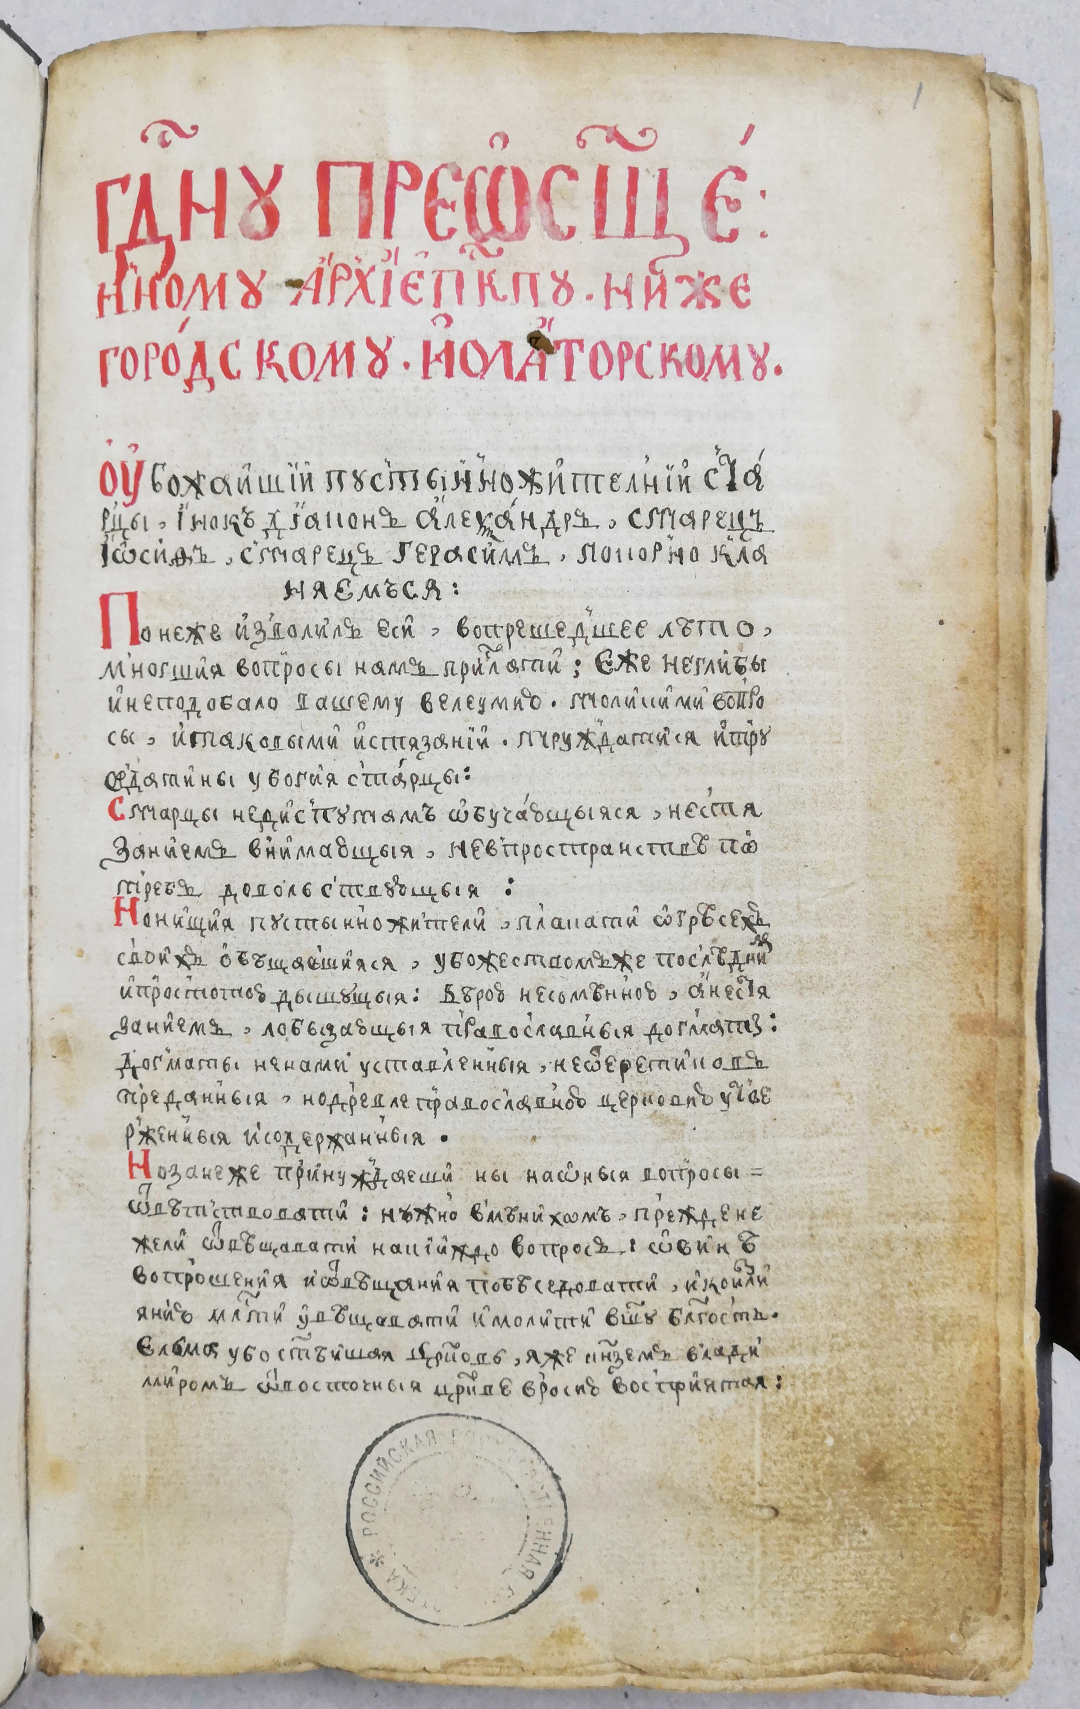 1
Гдⷭ҇нꙋ преѡсщ҃е́:
нномꙋ а҆рхїе҆пкⷭ҇пꙋ . ниже
горо́дскомꙋ . и҆ола́торскомꙋ .
Оу҆божайшїй пꙋстынножи́телнїй ста́
рцы , і҆нокъ дїаконъ а҆леѯа́ндръ , старецъ
І҆ѡ҆сифъ , старецъ герасимъ , покорно кла
няемъся :
Понеже и҆зволилъ еси , вопрешедшее лѣто ,
многшия вопросы намъ прислати ; еже неглибы
и҆неподобало вашему велеумию . толикими вопро
сы , и҆таковыми и҆стязанїи . труждатися и҆трꙋ
ждатины убогия ста́рцы :
Старцы недиспутамъ ѡ҆буча́ющыяся , нестя
заниемъ внимающыя , невпространствѣ по
требъ довольствꙋющыя :
Нонищия пустынножители , плакати ѡ҆грѣсехъ
своихъ ѻ҆бѣщавшияся , убожествомъже послѣднимъ
и҆простотою дышꙋщыя : вѣрою несомѣнною , а҆нестя
заниемъ , лобызающыя православныя догматы :
Догматы ненами уставленныя , неѿеретиковъ
преданныя , нодревле православною церковию утве
рженныя и҆содержанныя .
Нозанеже принуждаеши ны наѡ҆ныя вопросы =
ѿвѣтствовати : нужно вмѣнихомъ , преждене
жели ѿвѣщавати накійждо вопросъ : ѡ҆винѣ
вопрошения и҆ѿвѣщания побѣседовати , и҆коизли
яниѣ млⷭ҇ти у҆вѣщавати и҆молити вш҃у блгⷭ҇ость .
Ельма убо ст҃ѣйшая цр҃ковь , яже кн҃земъ влади
миромъ ѿвосточныя цр҃кве вросию воспринятая :
РОССИЙСКАЯ ГОСУДАРСТВЕННАЯ БИБЛИОТЕКА